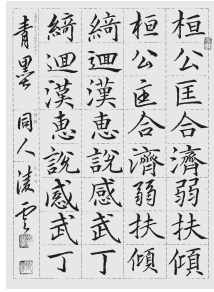 桓公匡合濟弱扶傾
桓公匡合濟弱扶傾
綺迴漢惠說感武丁
綺迴漢惠說感武丁
青墨 同人 凌雲